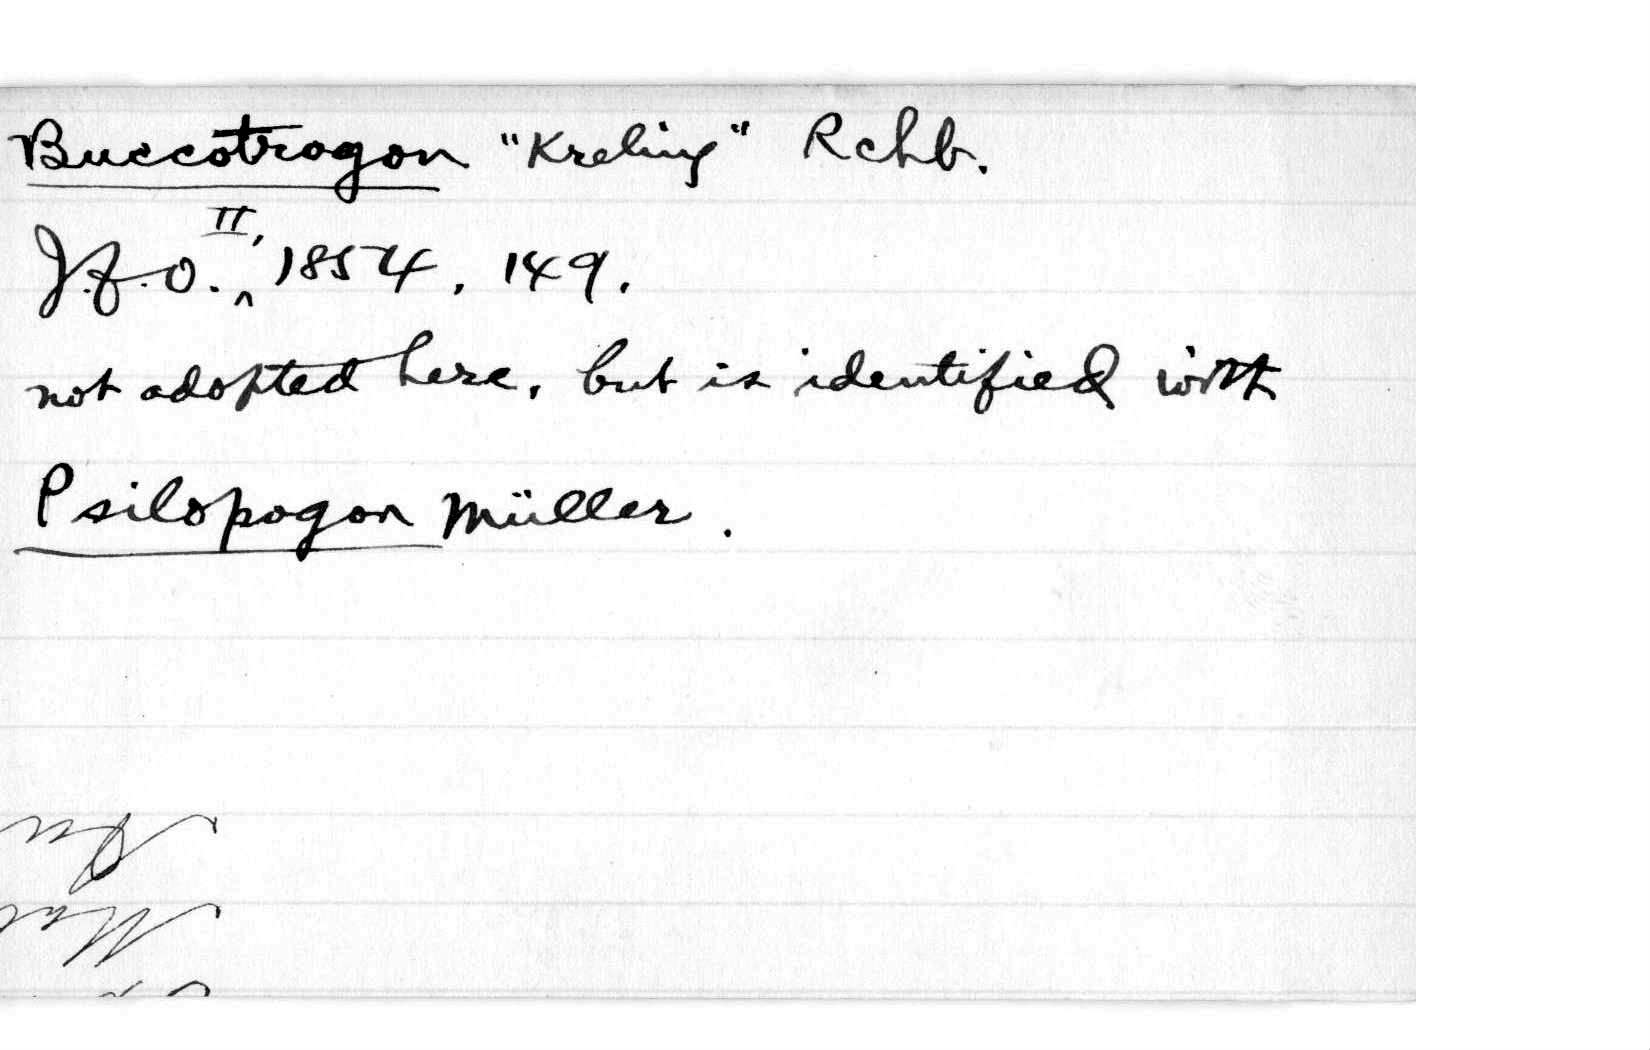 Buccotrogon "Kreling" Rchb.
J.f.O. II, 1854, 149.
not adopted here, but is identified with
Psilopogon Müller.